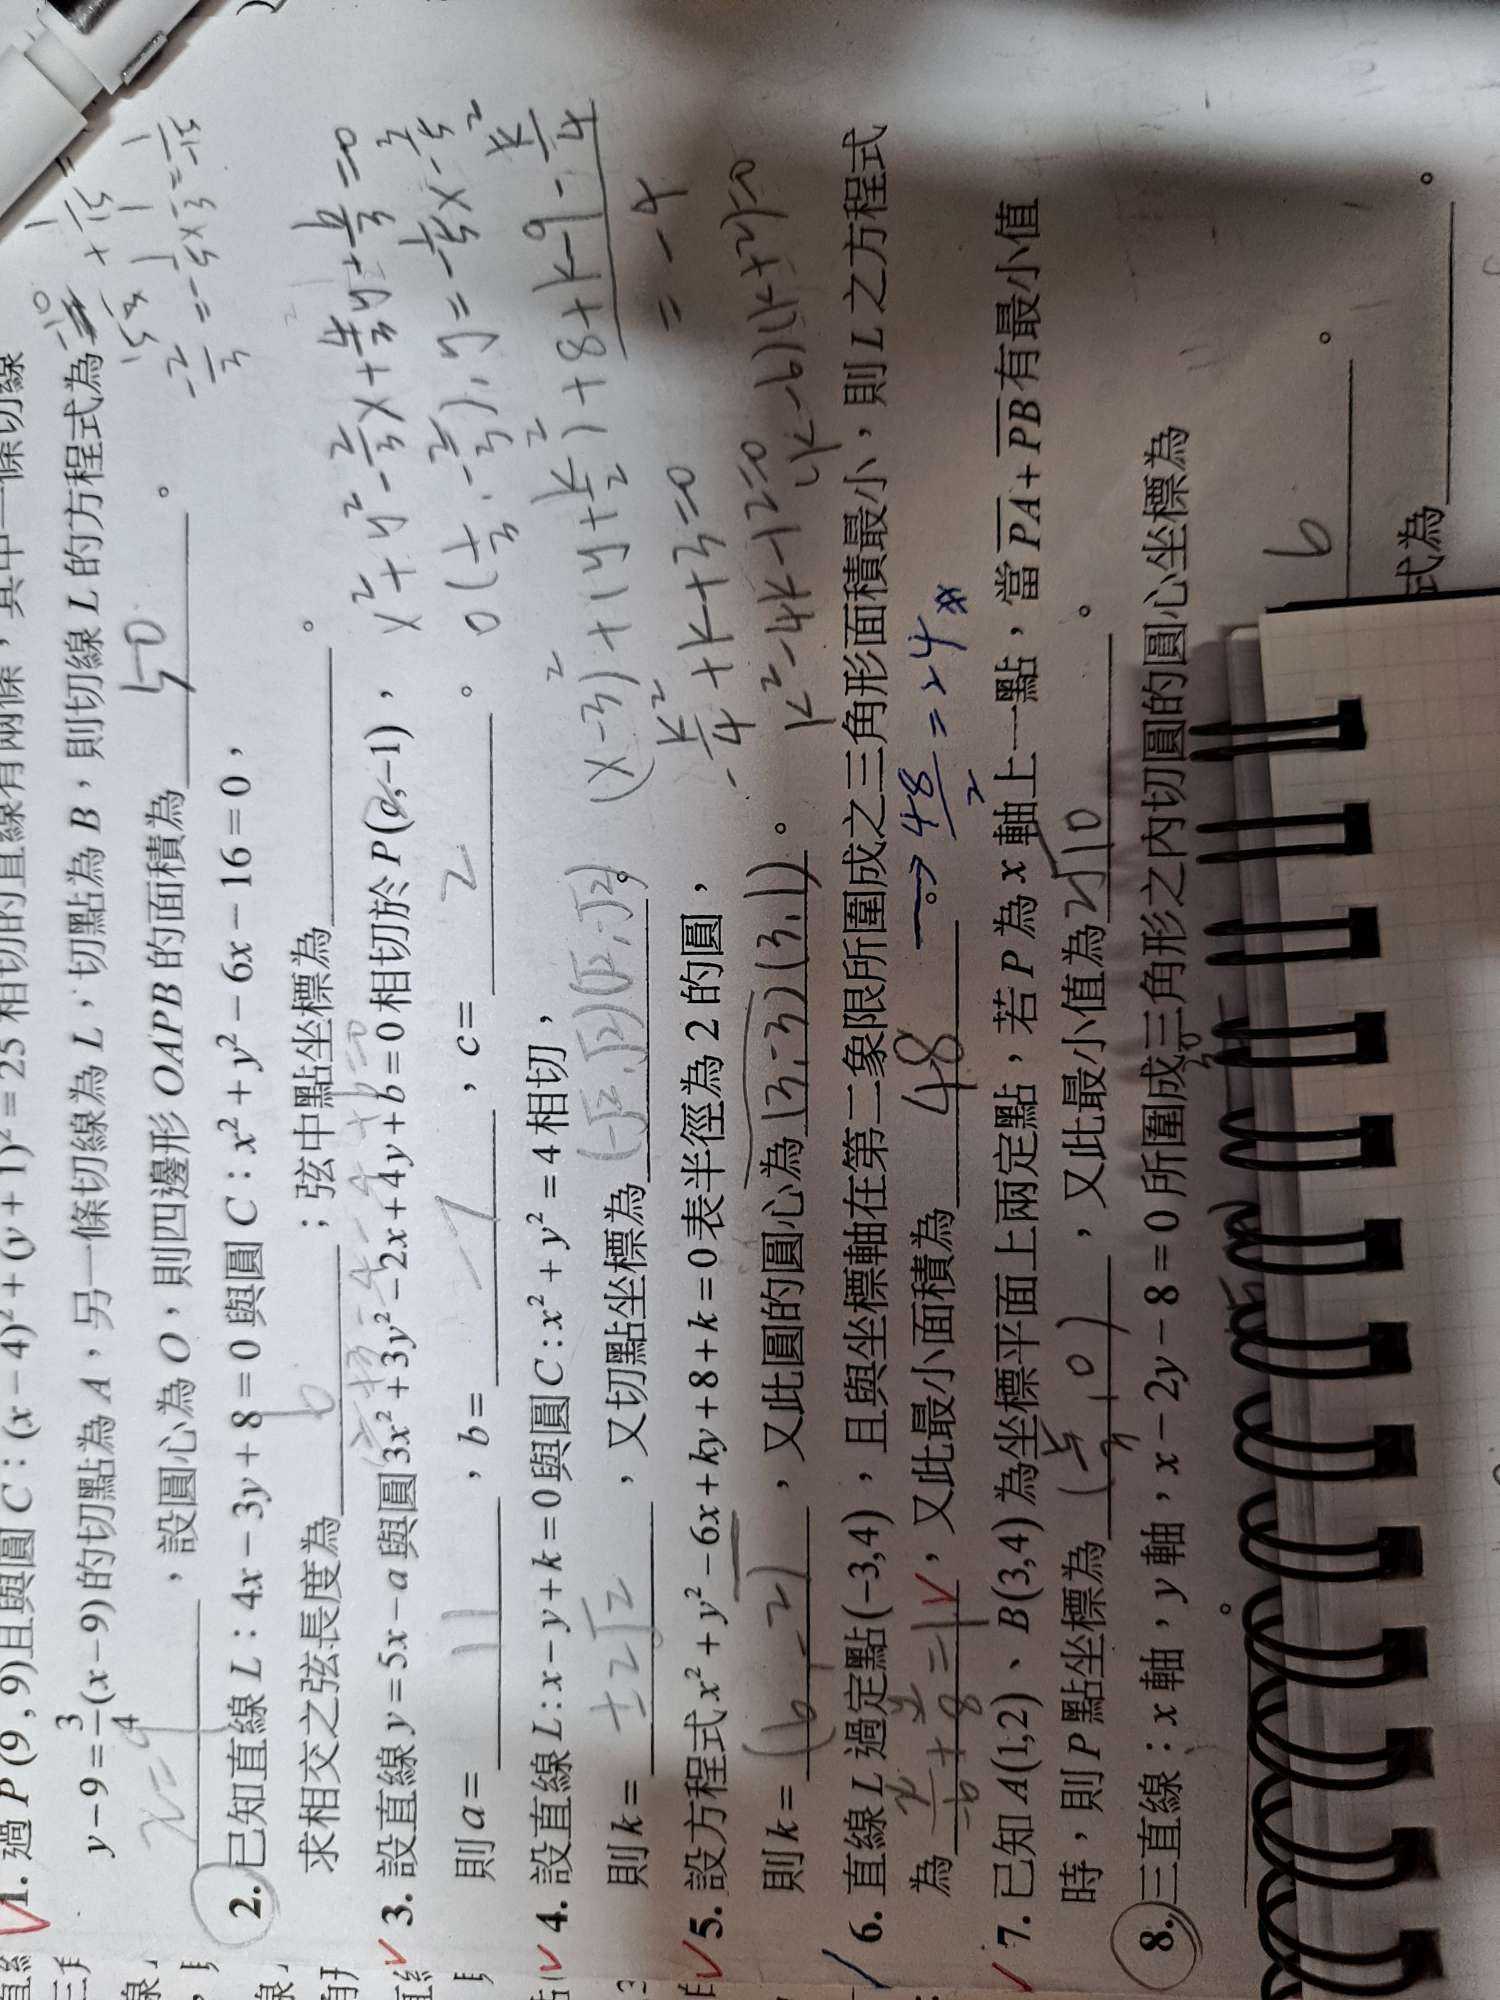 1. 過 P (9 , 9)且與圓 C : (x − 4)² + (y + 1)² = 25 相切的直線有兩條，其中一條切線
y − 9 = 3/4 (x − 9) 的切點為 A，另一條切線為 L，切點為 B，則切線 L 的方程式為
x = 9 ，設圓心為 O，則四邊形 OAPB 的面積為 50 。
2. 已知直線 L : 4x − 3y + 8 = 0 與圓 C : x² + y² − 6x − 16 = 0，
求相交之弦長度為 6 ；弦中點坐標為 。
x² + y² − 2/3 x + 4/3 y + b/3 = 0
3. 設直線 y = 5x − a 與圓 3x² + 3y² − 2x + 4y + b = 0 相切於 P (c, −1)，
O(1/3, −2/3), y = −1/5 x − 3/5
則 a = 11 ，b = −7 ，c = 2 。
4. 設直線 L : x − y + k = 0 與圓 C : x² + y² = 4 相切，
則 k = ±2√2 ，又切點坐標為 (−√2, √2)(√2, −√2) 。
(x − 3)² + (y + k/2)² + 8 + k − 9 − k²/4
= −4
5. 設方程式 x² + y² − 6x + ky + 8 + k = 0 表半徑為 2 的圓，
−k²/4 + k + 3 = 0
則 k = (6, −2) ，又此圓的圓心為 (3, −3)(3, 1) 。
k² − 4k − 12 = 0
(k − 6)(k + 2) = 0
6. 直線 L 過定點 (−3,4) ，且與坐標軸在第二象限所圍成之三角形面積最小，則 L 之方程式
為 x/−6 + y/8 = 1 ，又此最小面積為 48 。→ 48/2 = 24
7. 已知 A(1,2)、B(3,4) 為坐標平面上兩定點，若 P 為 x 軸上一點，當 PA + PB 有最小值
時，則 P 點坐標為 (5/3, 0) ，又此最小值為 2√10 。
8. 三直線：x 軸，y 軸，x − 2y − 8 = 0 所圍成三角形之內切圓的圓心坐標為
。
6 。
式為 。